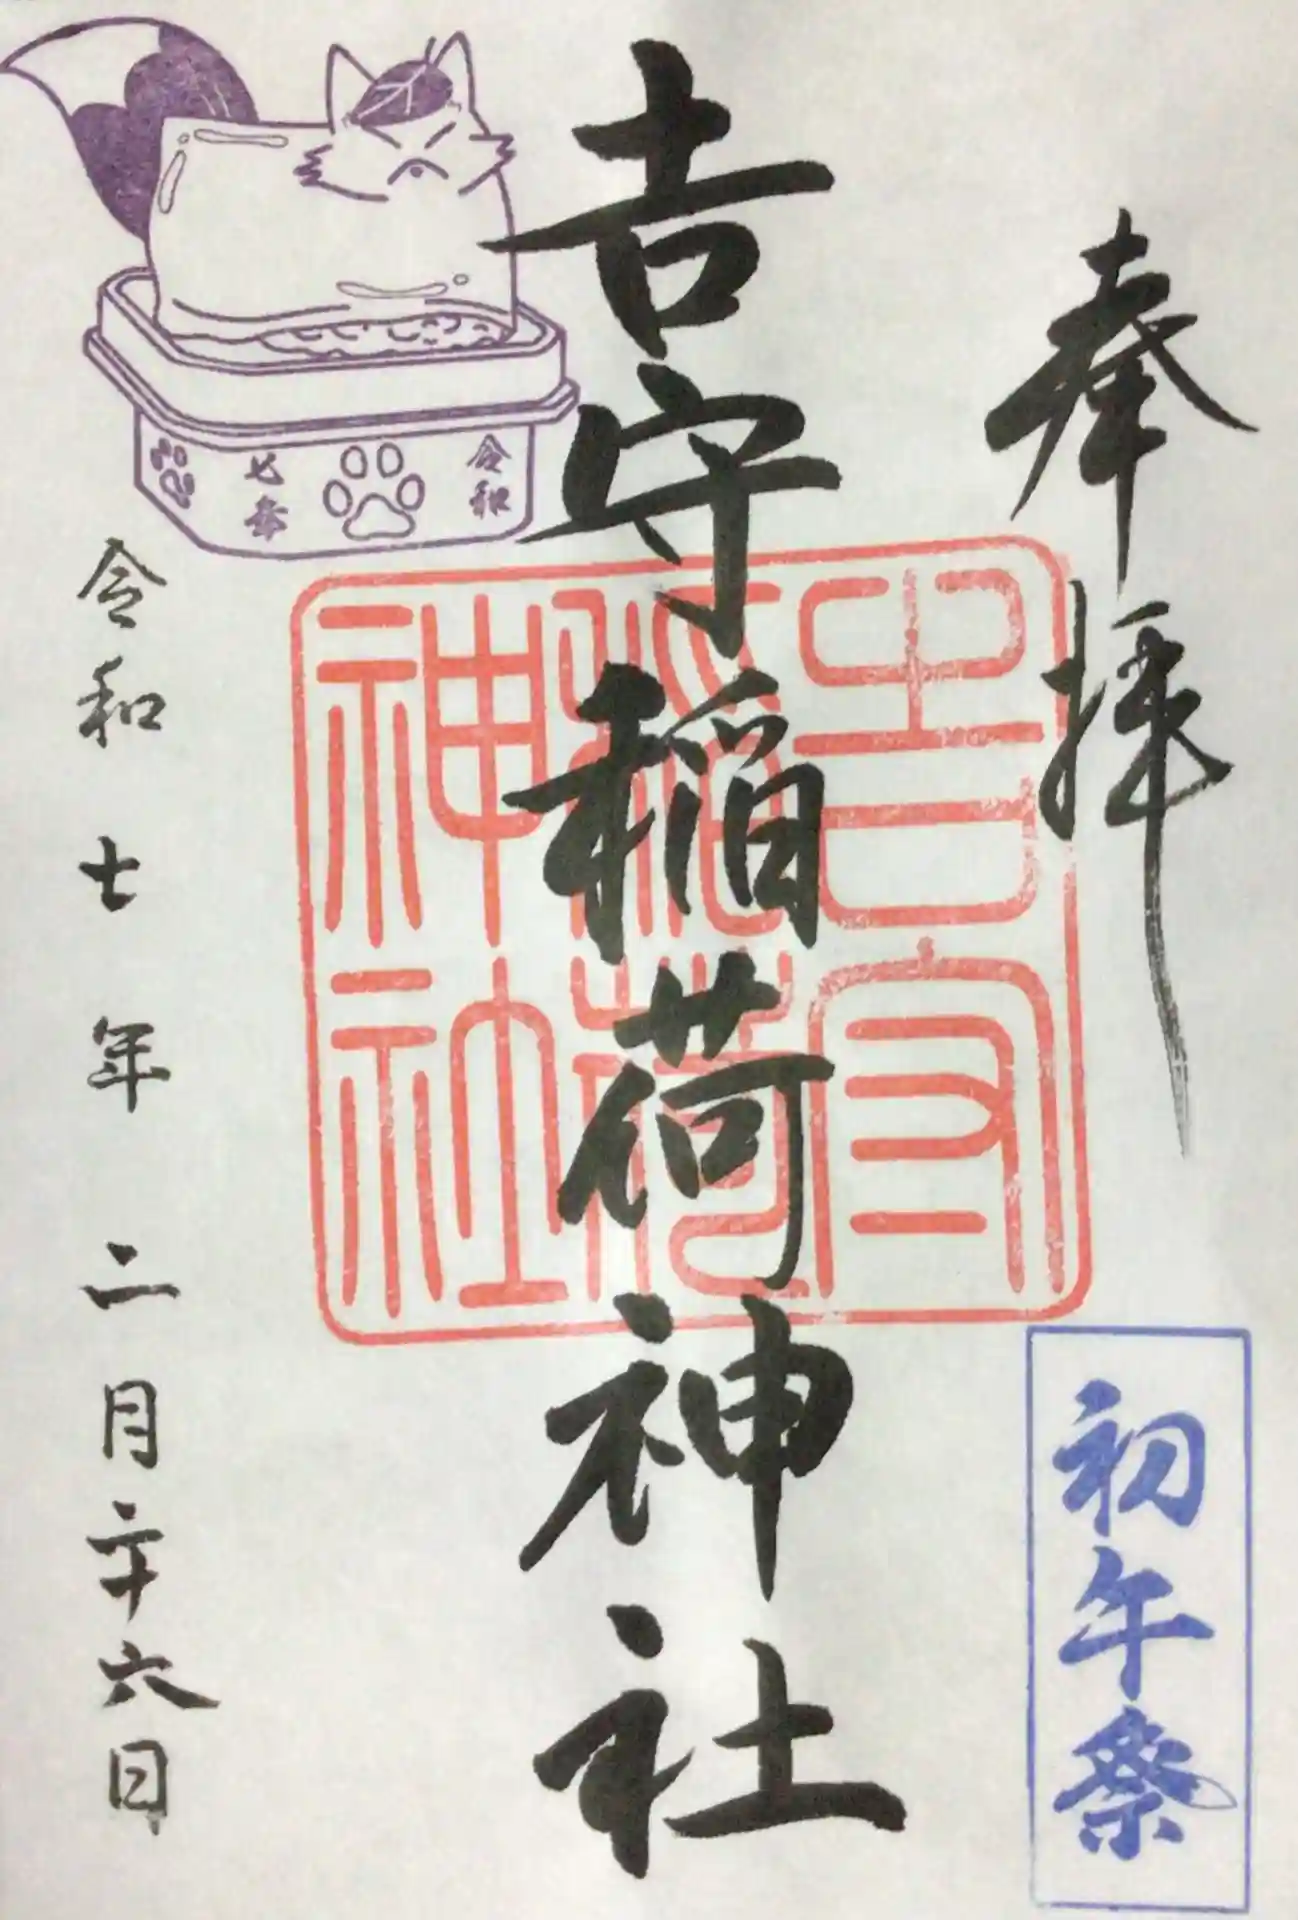 奉拝
初午祭
吉守稲荷神社
吉守
稲荷
神社
令和
七年
令和七年 二月二十六日